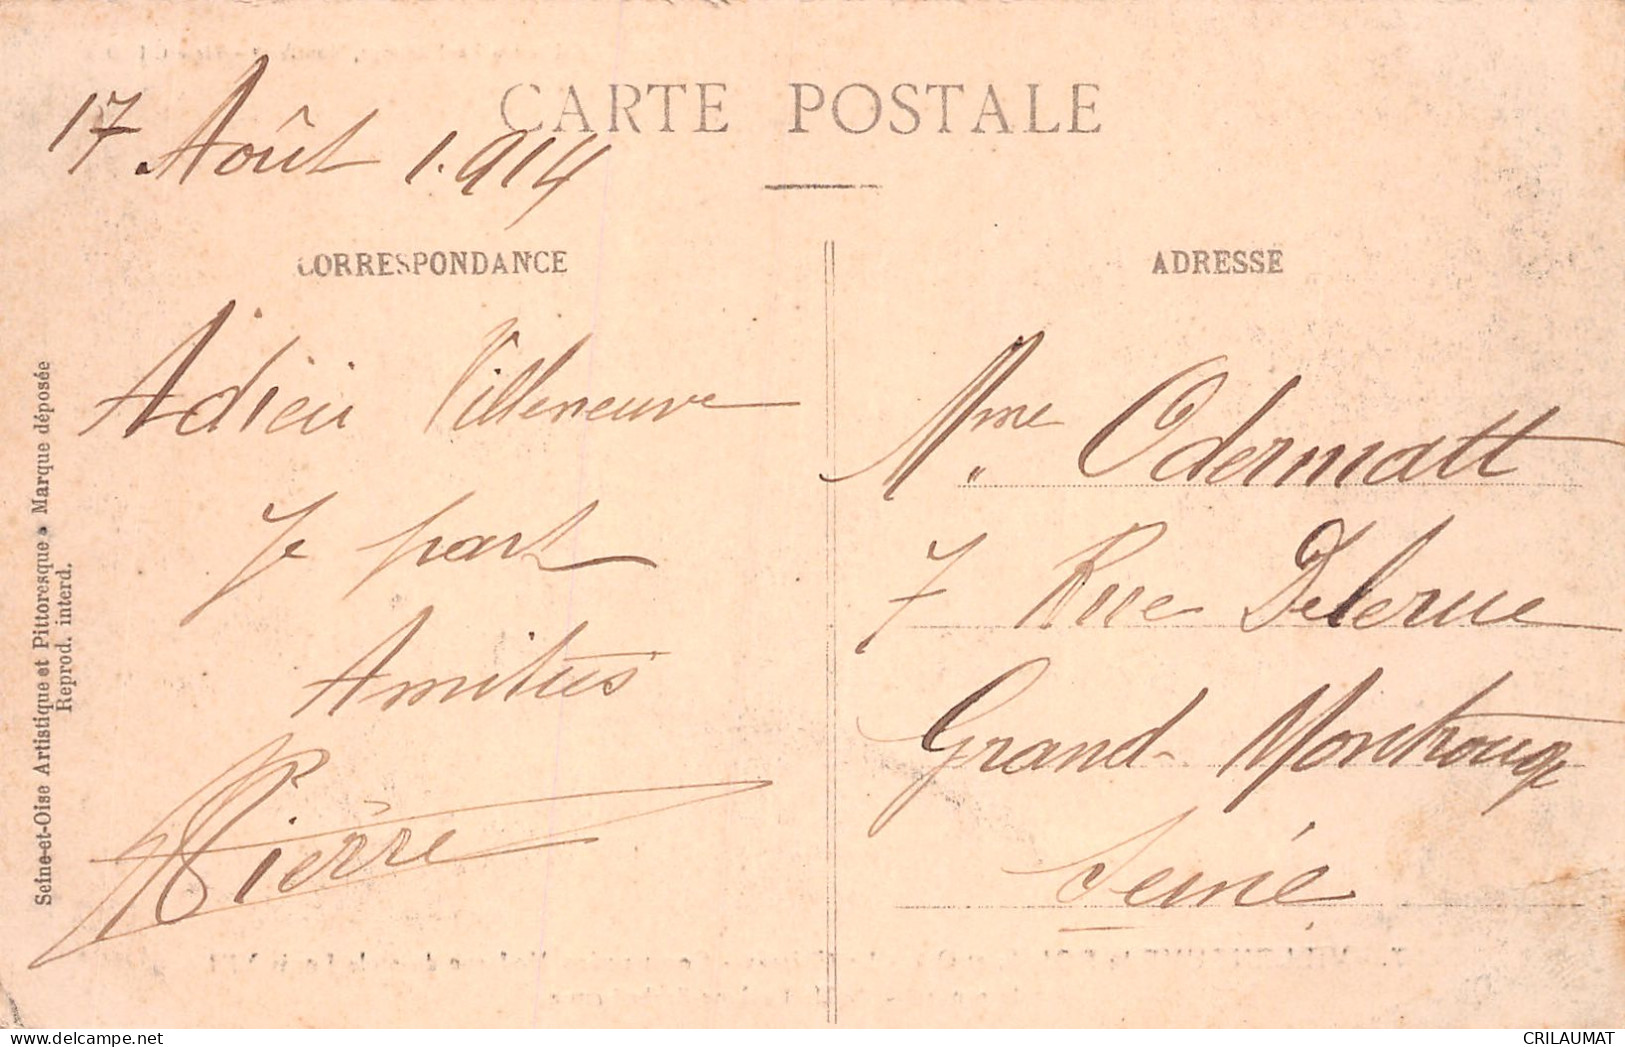 CARTE POSTALE
17 Août 1.914
CORRESPONDANCE
Adieu Villeneuve
Je part
Amitiés
Pierre
ADRESSE
Mme Odermatt
7 Rue Delerue
Grand-Montrouge
Seine
Seine-et-Oise Artistique et Pittoresque • Marque déposée
Reprod. interd.
delcampe.net
CRILAUMAT